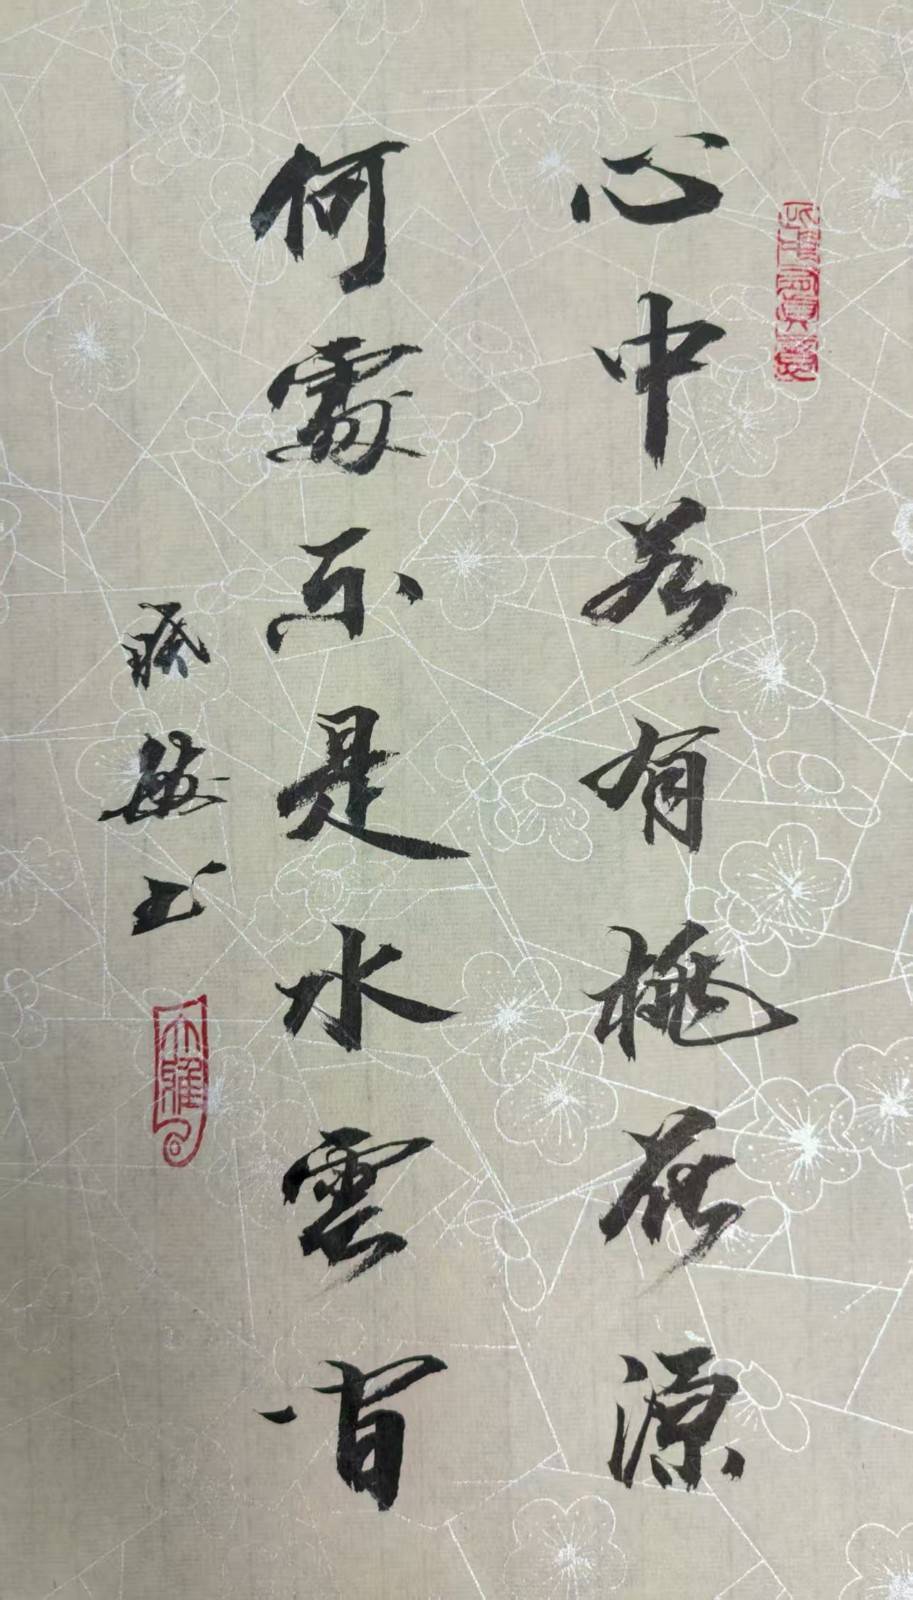 心中若有桃花源
何處不是水雲間
書